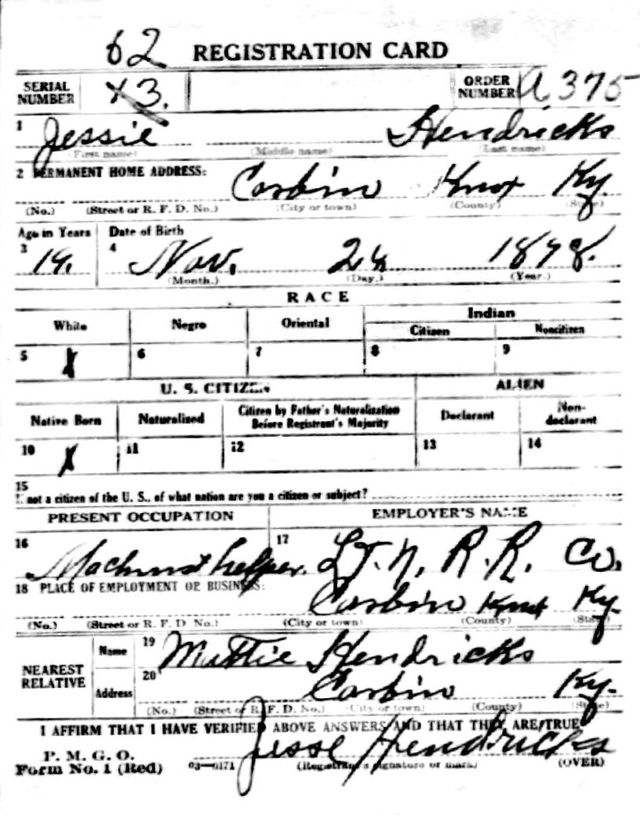 62 REGISTRATION CARD
SERIAL NUMBER X3. ORDER NUMBER A 375
1 Jessie Hendricks
(First name) (Middle name) (Last name)
2 PERMANENT HOME ADDRESS:
Corbin Knox Ky.
(No.) (Street or R. F. D. No.) (City or town) (County) (State)
Age in Years Date of Birth
3 19. 4 Nov. 1898.
(Month.) (Day.) (Year.)
RACE
White Negro Oriental Indian
Citizen Noncitizen
5 X 6 7 8 9
U. S. CITIZEN ALIEN
Native Born Naturalized Citizen by Father's Naturalization Before Registrant's Majority Declarant Non-declarant
10 X 11 12 13 14
15
If not a citizen of the U. S., of what nation are you a citizen or subject?
PRESENT OCCUPATION EMPLOYER'S NAME
16 Machinist helper. 17 L & N. R. R. Co.
18 PLACE OF EMPLOYMENT OR BUSINESS:
Corbin Knox Ky.
(No.) (Street or R. F. D. No.) (City or town) (County) (State)
NEAREST RELATIVE
Name 19 Mattie Hendricks
Address 20 Corbin Ky.
(No.) (Street or R. F. D. No.) (City or town) (County) (State)
I AFFIRM THAT I HAVE VERIFIED ABOVE ANSWERS AND THAT THEY ARE TRUE
P. M. G. O.
Form No. 1 (Red) 03—6171 Jesse Hendricks
(Registrant's signature or mark) (OVER)